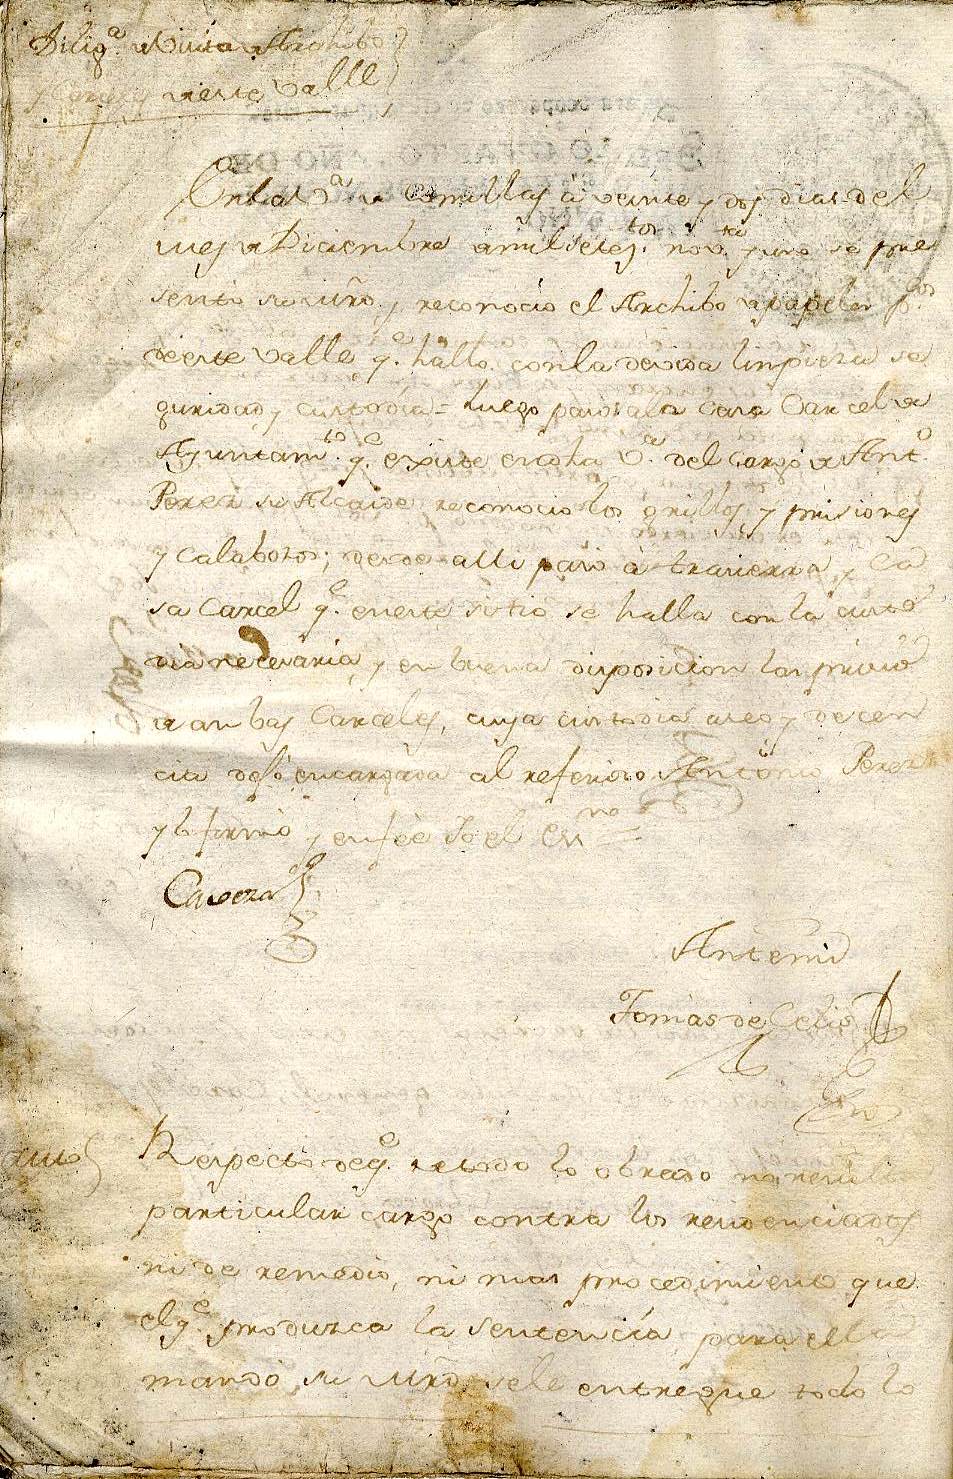 Dilig.ª de Visita de Archibo
y Carcel de este Valle
En la V.ª de Comillas a veinte y dos dias del
mes de Diciembre de mil setez.tos nov.ta y uno se pre
sento su mrd y reconocio el Archibo de papeles
de este Valle q.e hallo con la devida limpieza se
guridad y custodia = luego paso a la Casa Carcel de
Ayuntam.to q.e existe en dha V.ª del cargo de Ant.º
Perez su Alcaide, reconocio los grillos y prisiones
y calabozos; desde alli paso à travierra, y Ca
sa Carcel q.e en este sitio se halla con la custo
dia necesaria, y en buena disposicion las prisio
de anbas Carceles, cuya custodia aseo y decen
cia dejó encargada al referido Antonio Perez
y lo firmò y en fee Yo el Esn.no =
Caveza
Antemi
Tomas de Celis
auto
Respecto de q.e de todo lo obrado no resulta
particular cargo contra los residenciados
ni de remedio, ni mas procedimiento que
el q.e produzca la sentencia, para ella
mandò su mrd, sele entregue todo lo